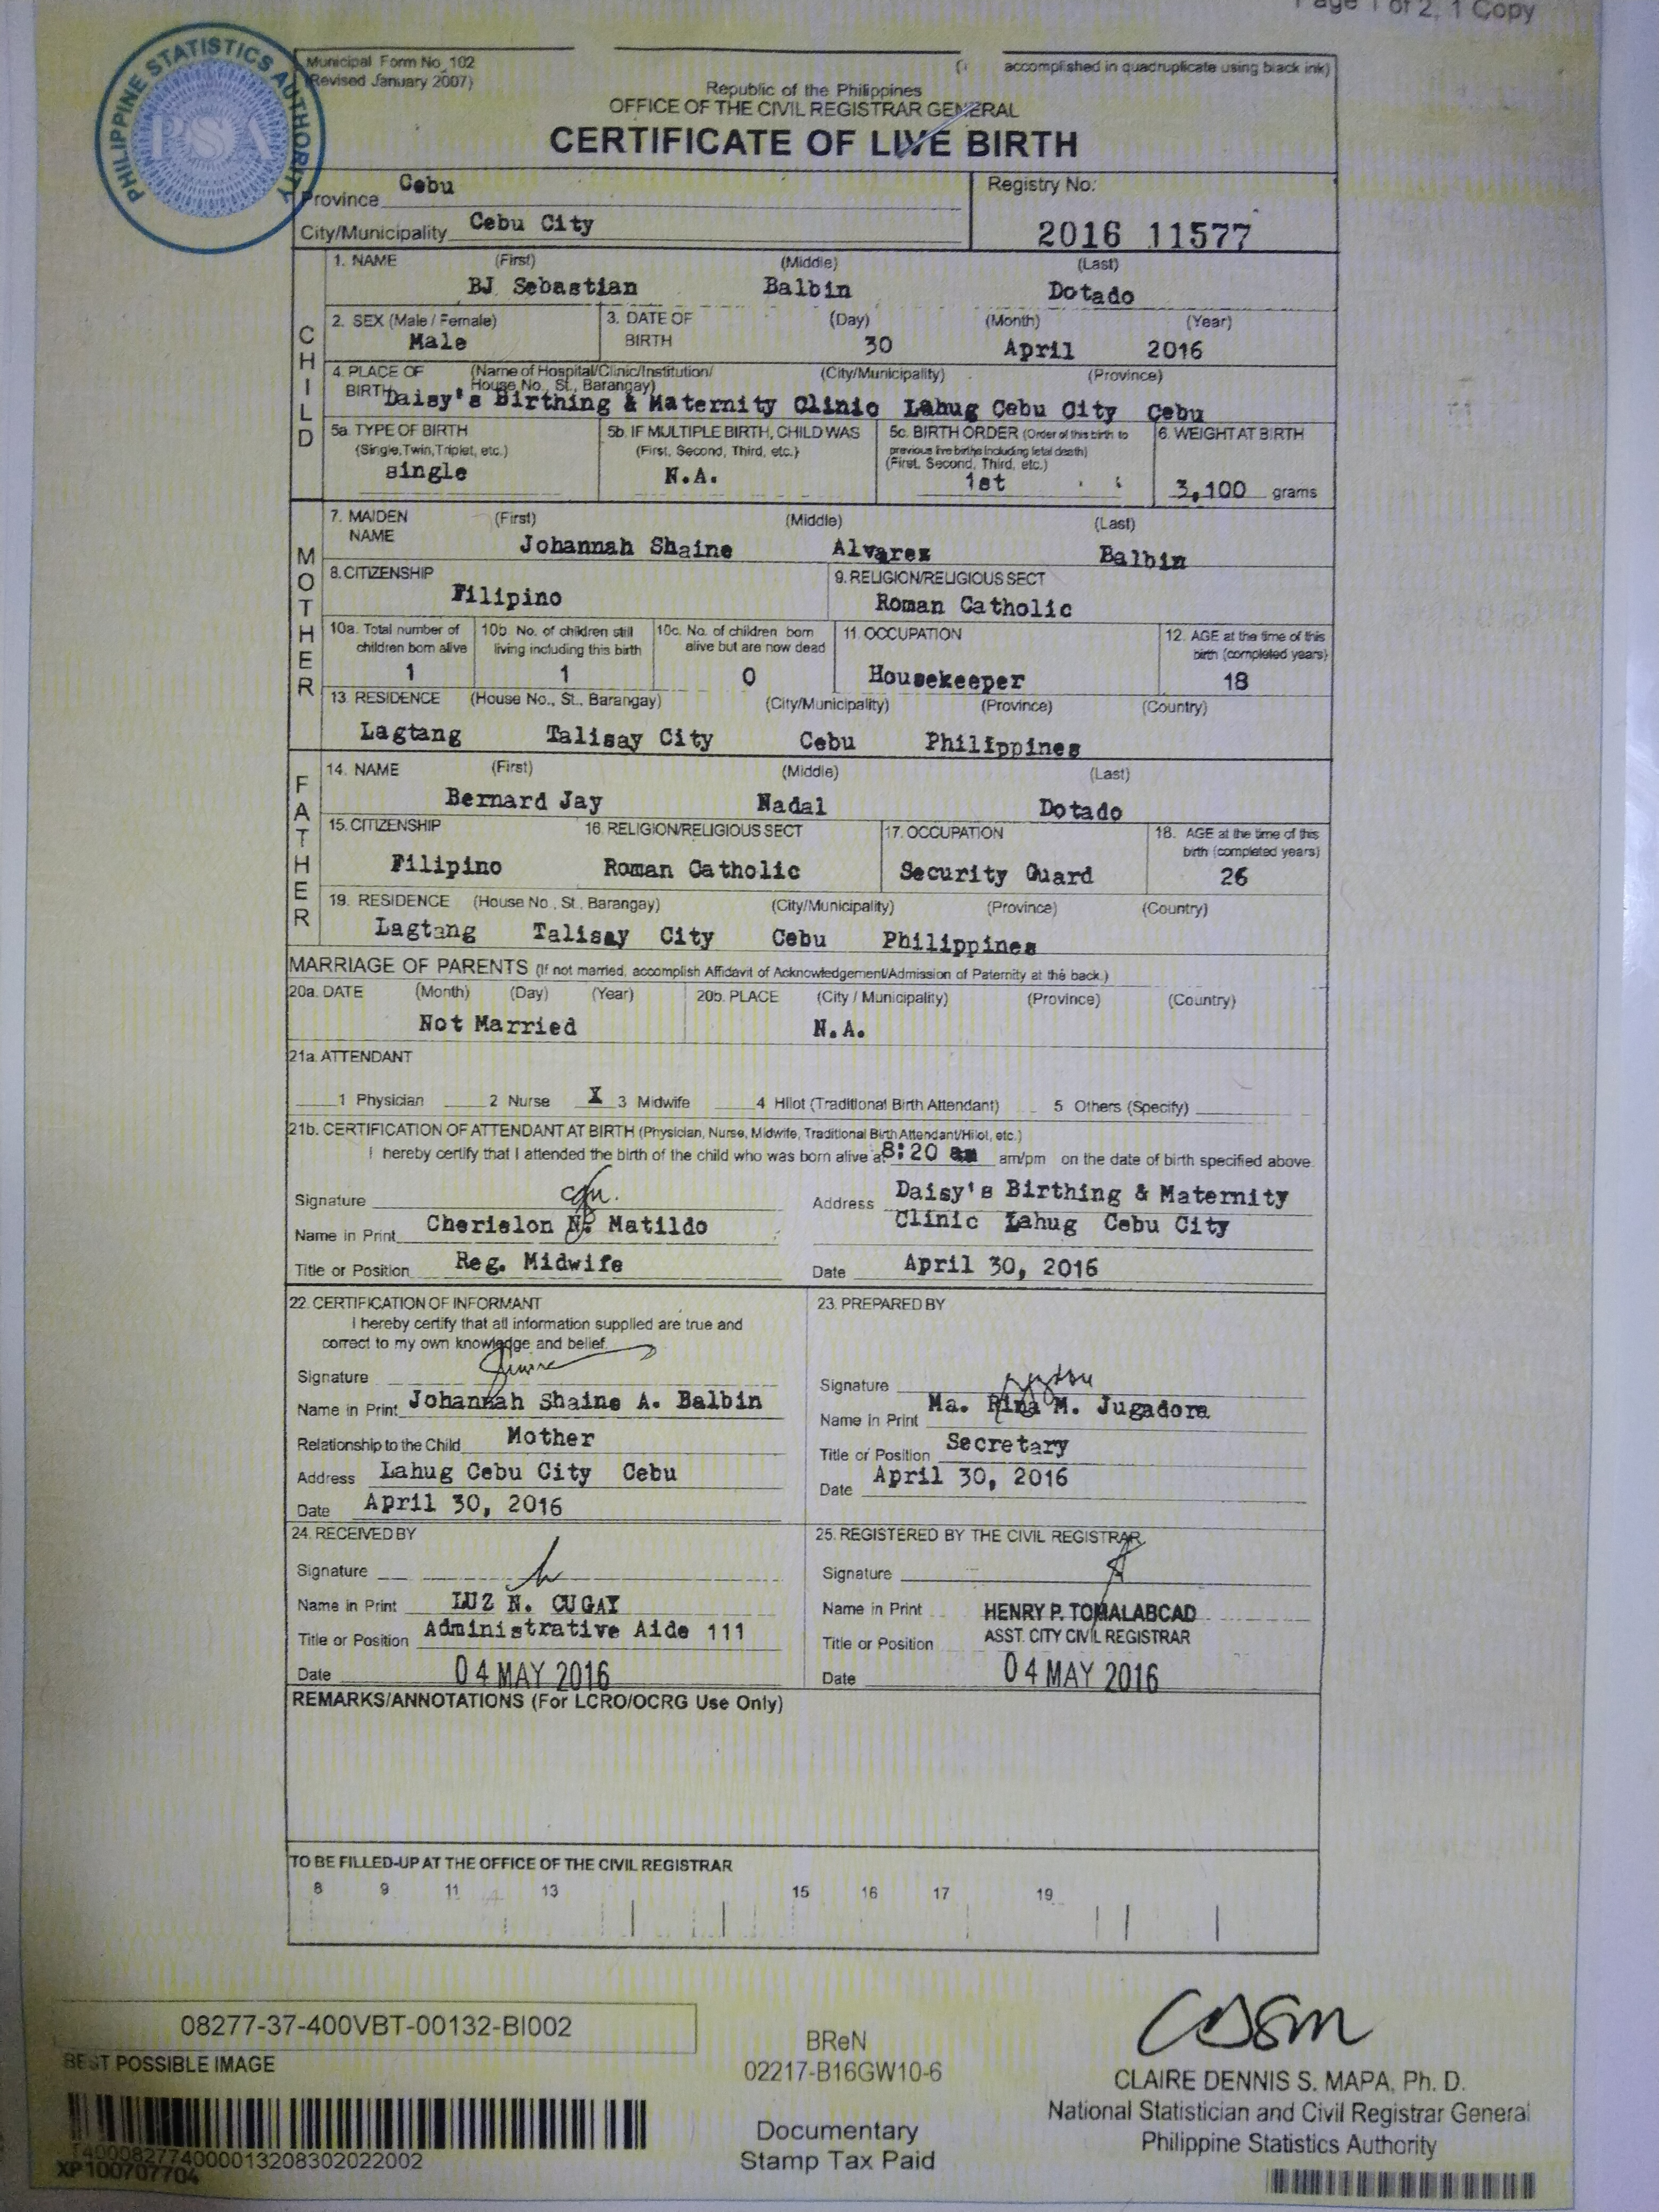 Page 1 of 2, 1 Copy
PHILIPPINE STATISTICS AUTHORITY
PSA
Municipal Form No. 102
(Revised January 2007)
accomplished in quadruplicate using black ink)
Republic of the Philippines
OFFICE OF THE CIVIL REGISTRAR GENERAL
CERTIFICATE OF LIVE BIRTH
Province Cebu
City/Municipality Cebu City
Registry No.
2016 11577
CHILD
1. NAME (First) (Middle) (Last)
BJ Sebastian Balbin Dotado
2. SEX (Male / Female) 3. DATE OF BIRTH (Day) (Month) (Year)
Male 30 April 2016
4. PLACE OF BIRTH (Name of Hospital/Clinic/Institution/ House No., St., Barangay) (City/Municipality) (Province)
Daisy's Birthing & Maternity Clinic Lahug Cebu City Cebu
5a. TYPE OF BIRTH (Single, Twin, Triplet, etc.)
single
5b. IF MULTIPLE BIRTH, CHILD WAS (First, Second, Third, etc.)
N.A.
5c. BIRTH ORDER (Order of this birth to previous live births including fetal death) (First, Second, Third, etc.)
1st
6. WEIGHT AT BIRTH
3,100 grams
MOTHER
7. MAIDEN NAME (First) (Middle) (Last)
Johannah Shaine Alvarez Balbin
8. CITIZENSHIP
Filipino
9. RELIGION/RELIGIOUS SECT
Roman Catholic
10a. Total number of children born alive
1
10b. No. of children still living including this birth
1
10c. No. of children born alive but are now dead
0
11. OCCUPATION
Housekeeper
12. AGE at the time of this birth (completed years)
18
13. RESIDENCE (House No., St., Barangay) (City/Municipality) (Province) (Country)
Lagtang Talisay City Cebu Philippines
FATHER
14. NAME (First) (Middle) (Last)
Bernard Jay Nadal Dotado
15. CITIZENSHIP
Filipino
16. RELIGION/RELIGIOUS SECT
Roman Catholic
17. OCCUPATION
Security Guard
18. AGE at the time of this birth (completed years)
26
19. RESIDENCE (House No., St., Barangay) (City/Municipality) (Province) (Country)
Lagtang Talisay City Cebu Philippines
MARRIAGE OF PARENTS (If not married, accomplish Affidavit of Acknowledgement/Admission of Paternity at the back.)
20a. DATE (Month) (Day) (Year) 20b. PLACE (City / Municipality) (Province) (Country)
Not Married N.A.
21a. ATTENDANT
1 Physician 2 Nurse X 3 Midwife 4 Hilot (Traditional Birth Attendant) 5 Others (Specify)
21b. CERTIFICATION OF ATTENDANT AT BIRTH (Physician, Nurse, Midwife, Traditional Birth Attendant/Hilot, etc.)
I hereby certify that I attended the birth of the child who was born alive at 8:20 am am/pm on the date of birth specified above.
Signature
Name in Print Cherielon N. Matildo
Title or Position Reg. Midwife
Address Daisy's Birthing & Maternity
Clinic Lahug Cebu City
Date April 30, 2016
22. CERTIFICATION OF INFORMANT
I hereby certify that all information supplied are true and
correct to my own knowledge and belief.
Signature
Name in Print Johannah Shaine A. Balbin
Relationship to the Child Mother
Address Lahug Cebu City Cebu
Date April 30, 2016
23. PREPARED BY
Signature
Name in Print Ma. Rina M. Jugadora
Title or Position Secretary
Date April 30, 2016
24. RECEIVED BY
Signature
Name in Print LUZ N. CUGAY
Title or Position Administrative Aide 111
Date 04 MAY 2016
25. REGISTERED BY THE CIVIL REGISTRAR
Signature
Name in Print HENRY P. TOMALABCAD
Title or Position ASST. CITY CIVIL REGISTRAR
Date 04 MAY 2016
REMARKS/ANNOTATIONS (For LCRO/OCRG Use Only)
TO BE FILLED-UP AT THE OFFICE OF THE CIVIL REGISTRAR
8 9 11 13 15 16 17 19
08277-37-400VBT-00132-BI002
BEST POSSIBLE IMAGE
T400082774000013208302022002
XP100707704
BReN
02217-B16GW10-6
Documentary
Stamp Tax Paid
CLAIRE DENNIS S. MAPA, Ph. D.
National Statistician and Civil Registrar General
Philippine Statistics Authority